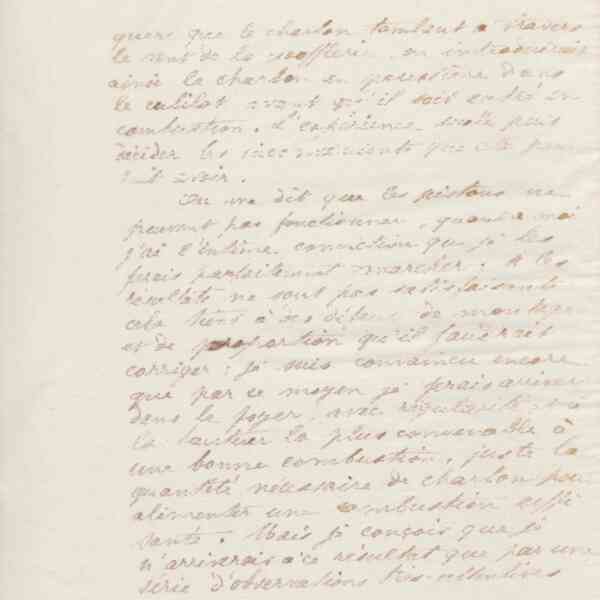 que le charbon tombant à travers
le vent de la soufflerie, on
ainsi le charbon en poussière dans
le avant qu'il soit entré en
combustion. L'expérience seule peut
décider les inconvénients que cela
avoir.
On me dit que les pistons ne
peuvent pas fonctionner, quant à moi
j'ai l'intime conviction que je les
ferais parfaitement marcher. les
résultats ne sont pas satisfaisants
cela tient à des défauts de montage
et de proportion qu'il faudrait
corriger; je suis convaincu encore
que par ce moyen je ferais arriver
dans le foyer, avec régularité
la hauteur la plus convenable à
une bonne combustion, juste la
quantité nécessaire de charbon pour
alimenter une combustion
Mais je conçois que je
n'arriverais à ce résultat que par une
série d'observations très